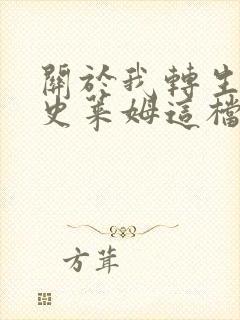 關於我轉生
史萊姆這檔
方茸